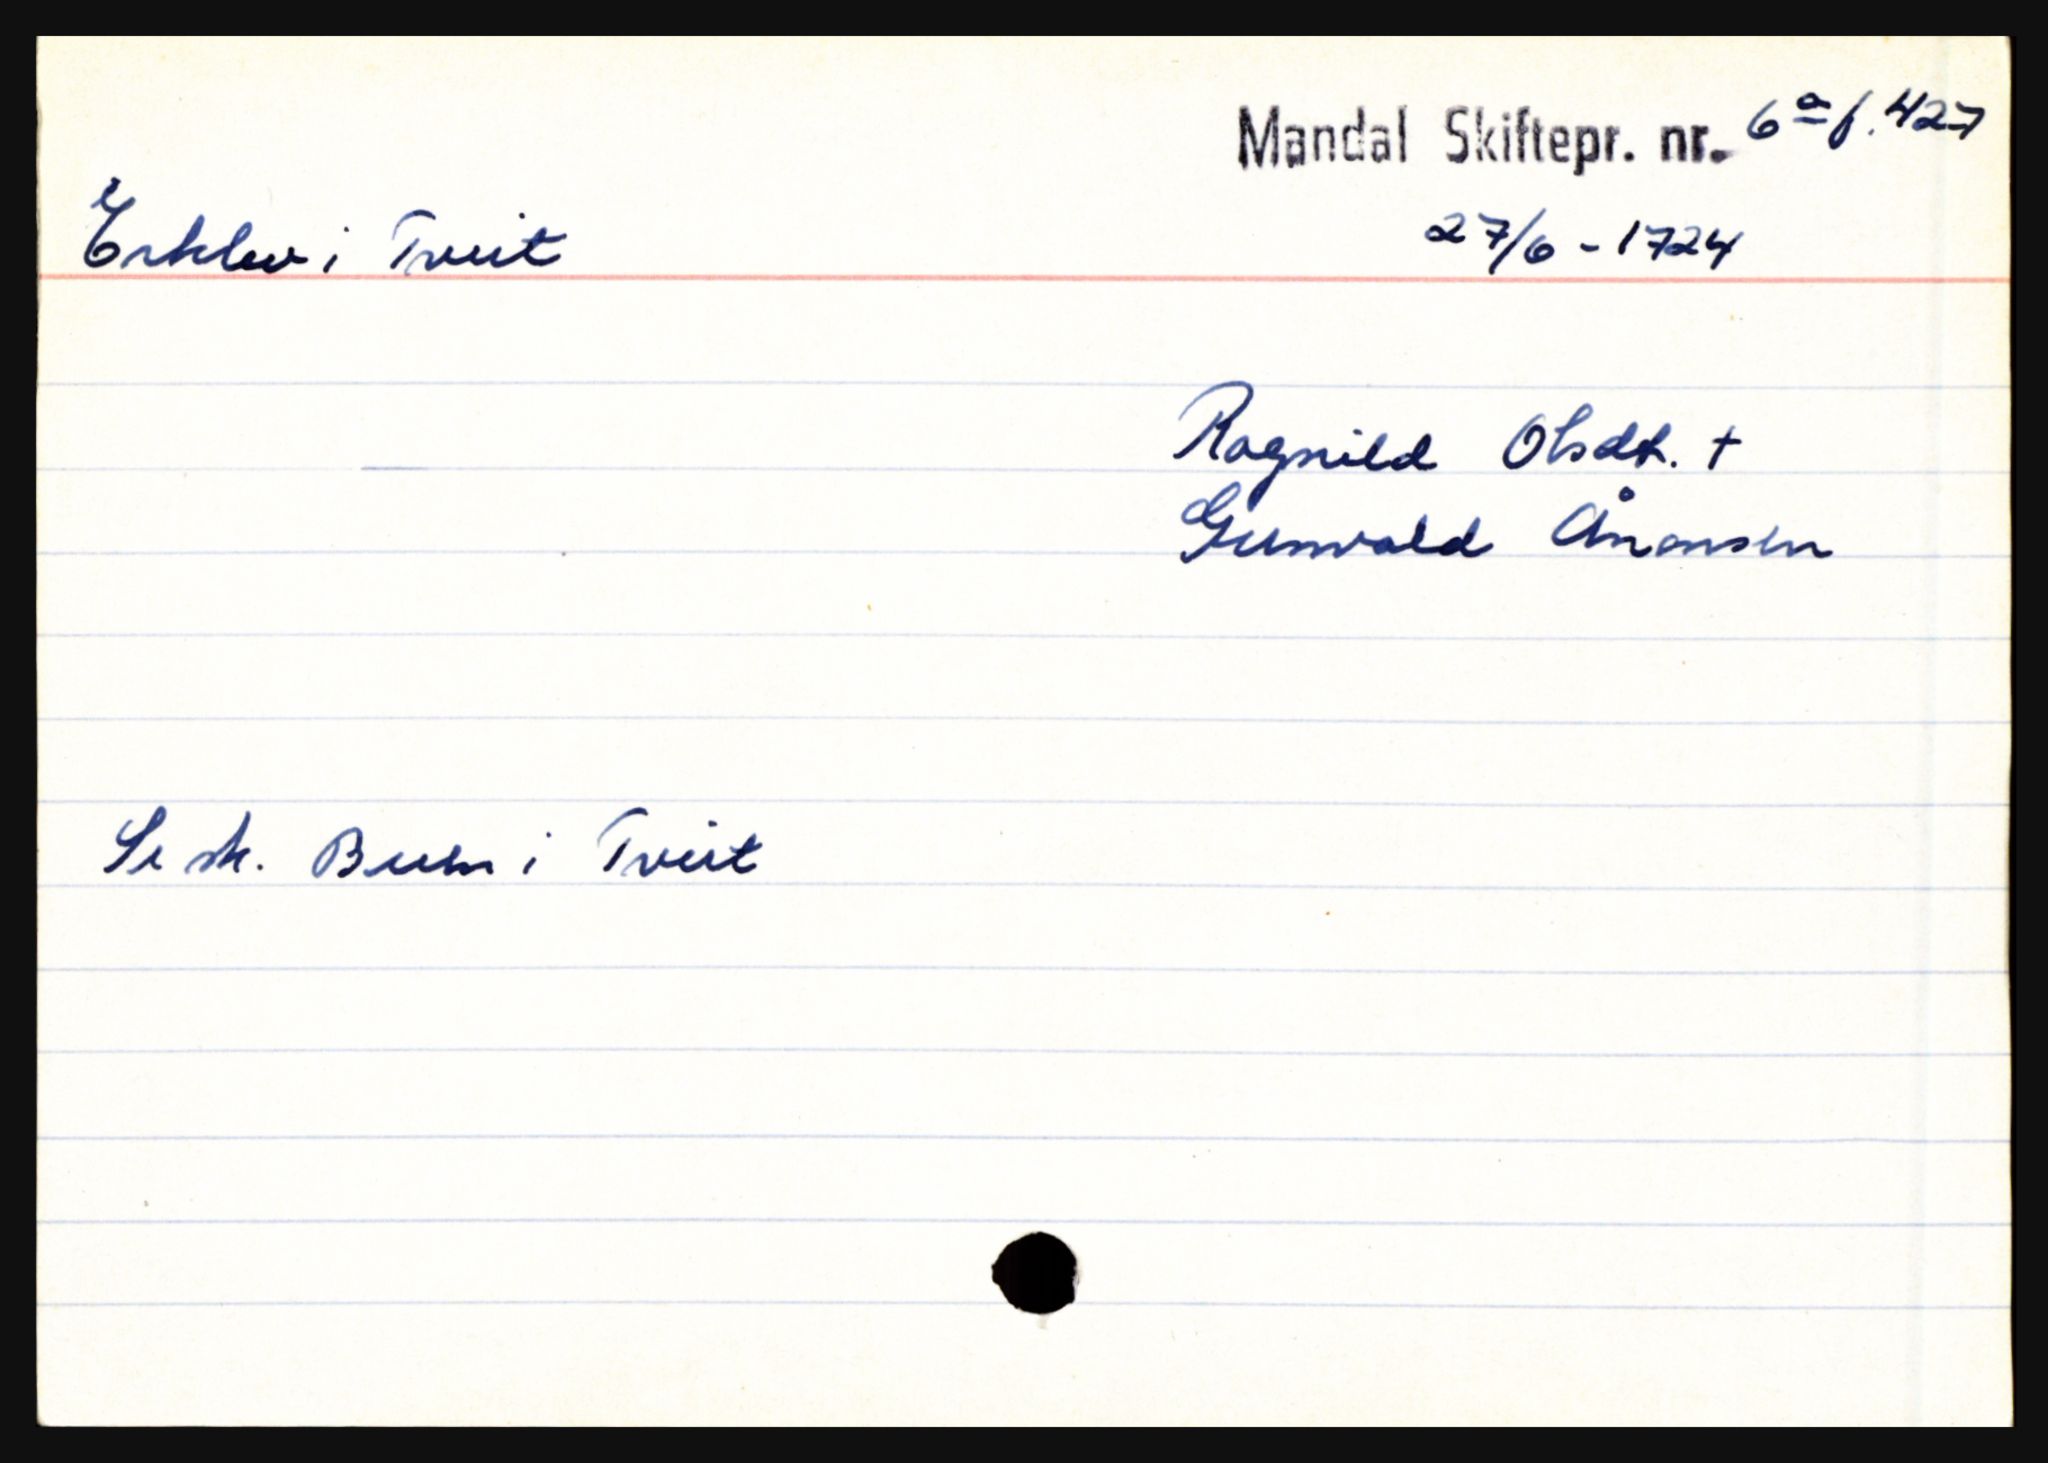 Mandal Skiftepr. nr. 6a f. 427
Erklev i Tveit 27/6 - 1724
Ragnild Olsdt. +
Gunvald Ånonsen
Se sk. Buen i Tveit